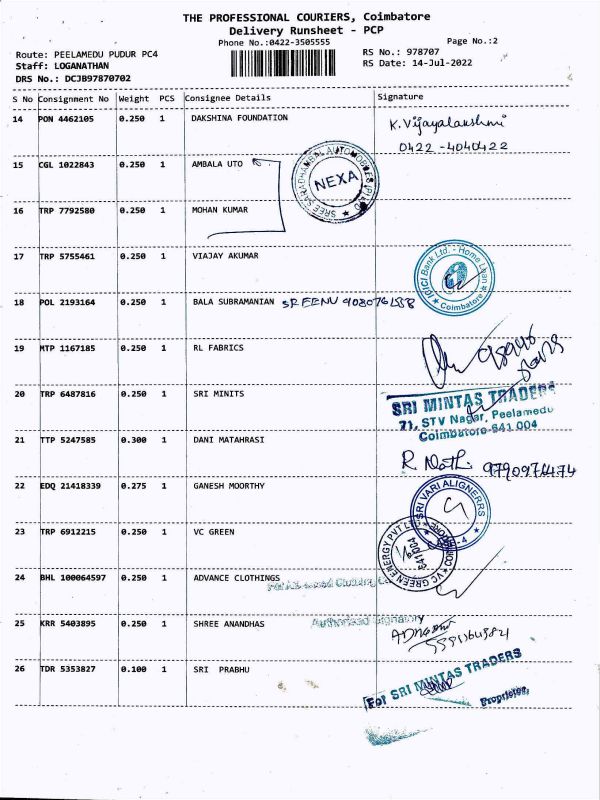 THE PROFESSIONAL COURIERS, Coimbatore
Delivery Runsheet - PCP
Phone No.:0422-3505555
Page No.:2
Route: PEELAMEDU PUDUR PC4
RS No.: 978707
Staff: LOGANATHAN
RS Date: 14-Jul-2022
DRS No.: DCJB97870702
S No Consignment No Weight PCS Consignee Details Signature
14 PON 4462105 0.250 1 DAKSHINA FOUNDATION K. Vijayalakshmi
0422 - 4040422
15 CGL 1022843 0.250 1 AMBALA UTO
SREE SARADHAMBAL AUTOMOBILES (P) LTD
NEXA
16 TRP 7792580 0.250 1 MOHAN KUMAR
17 TRP 5755461 0.250 1 VIAJAY AKUMAR
ICICI Bank Ltd. - Home Loan
Coimbatore
18 POL 2193164 0.250 1 BALA SUBRAMANIAN SREENU
19 MTP 1167185 0.250 1 RL FABRICS
20 TRP 6487816 0.250 1 SRI MINITS
SRI MINTAS TRADERS
71, STV Nagar, Peelamedu
Coimbatore-641 004
21 TTP 5247585 0.300 1 DANI MATAHRASI
22 EDQ 21418339 0.275 1 GANESH MOORTHY
SRI VARI ALIGNERRS
23 TRP 6912215 0.250 1 VC GREEN
VC GREEN ENERGY PVT LTD
24 BHL 100064597 0.250 1 ADVANCE CLOTHINGS
25 KRR 5403895 0.250 1 SHREE ANANDHAS
Authorised Signatory
26 TDR 5353827 0.100 1 SRI PRABHU
For SRI MINTAS TRADERS
Proprietor